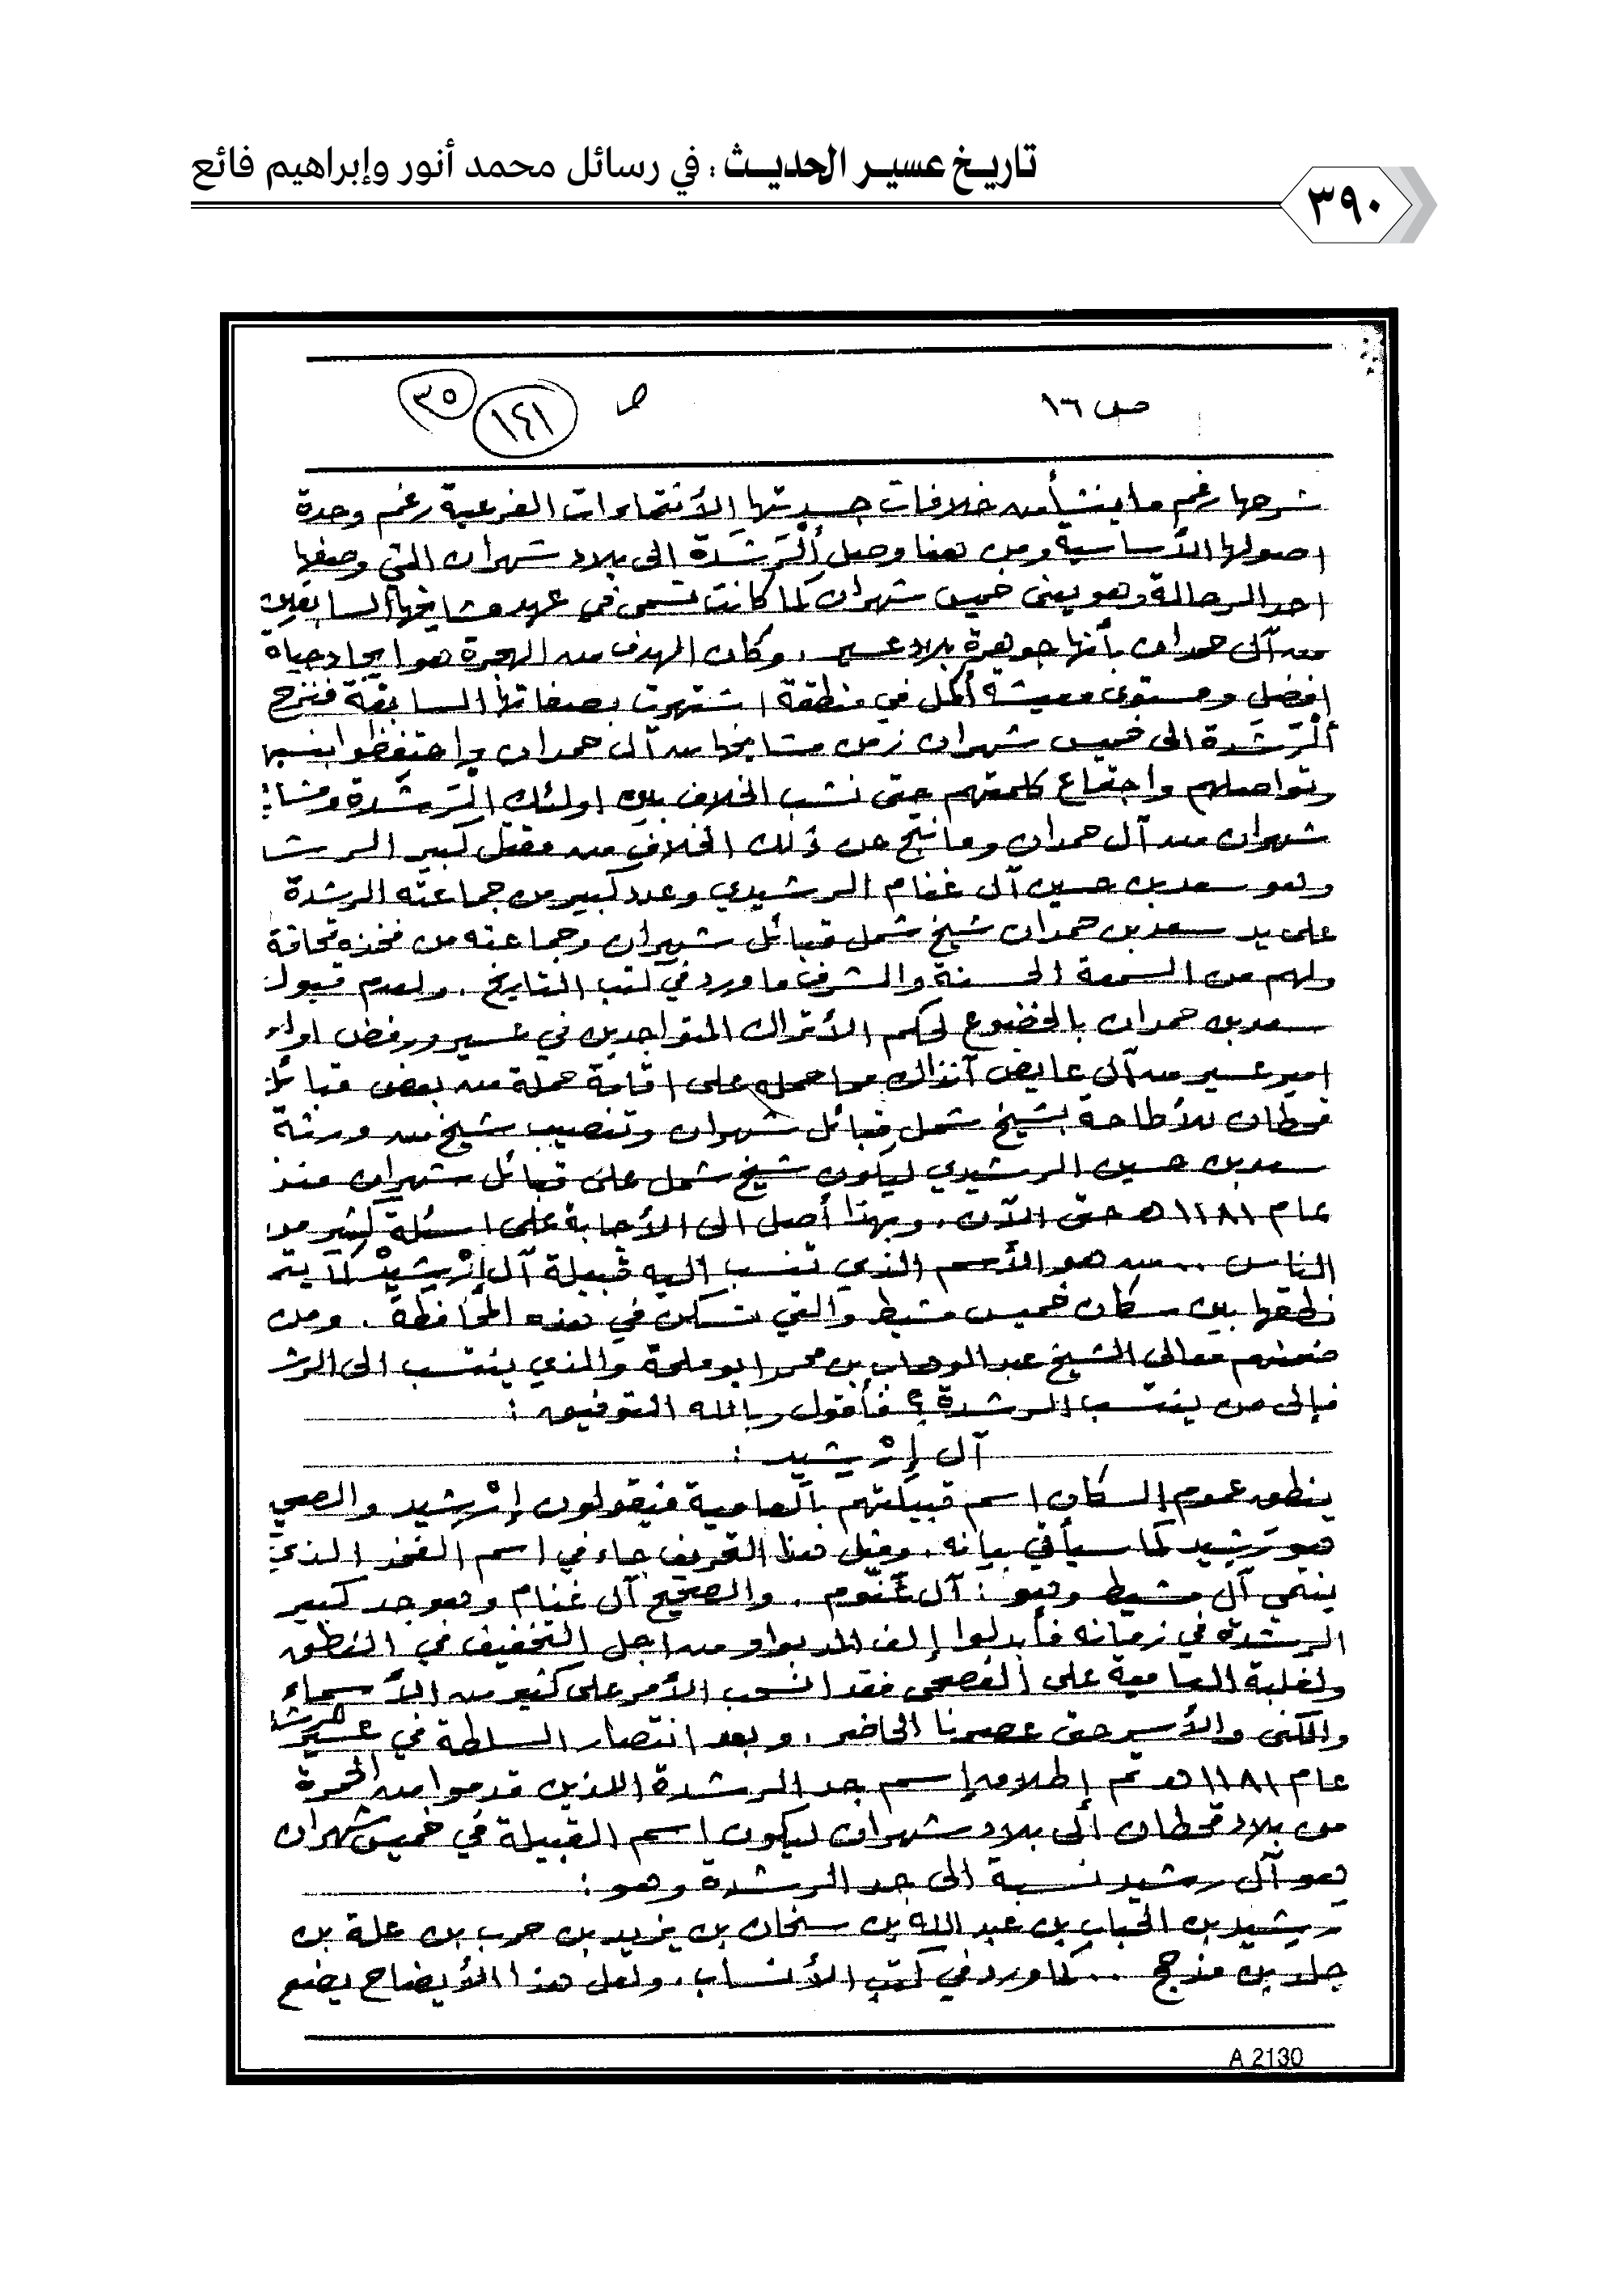 تاريخ عسير الحديث : في رسائل محمد أنور وإبراهيم فائع
٣٩٠
ص ١٦
ص ١٤١ ٣٥
شرحها رغم ما ينشأ من خلافات الأنتماءات الفرعية رغم وحدة
اصولها الأساسية ومن هنا وصل ألرَشَدَة الى بلاد شهران التي وصفها
احد الرحالة وهو يعني خميس شهران كما كانت تسمى في عهد مشايخها السابقين
من آل حمدان بأنها جوهرة بلاد عسير . وكان الهدف من الهجرة هو ايجاد حياة
افضل ومستوى معيشة أكمل في منطقة اشتهرت بصفاتها السابقة فنزح
ألرَشَدة الى خميس شهران زمن مشايخها من آل حمدان واحتفظوا بنسبها
وتواصلهم واجتماع كلمتهم حتى نشب الخلاف بين اولئك الرَشَدة ومشايخ
شهران من آل حمدان وما نتج عن ذلك الخلاف من مقتل كبير الرشـ
وهو سعد بن حسين آل غنام الرشيدي وعدد كبير من جماعته الرشدة
على يد سعد بن حمدان شيخ شمل قبائل شهران وجماعته من فخذه قحافة
ولهم من السمعة الحسنة والشرف ما ورد في كتب التاريخ . ولعدم قبول
سعد بن حمدان بالخضوع لحكم الأتراك المتواجدين في عسير ورفض اوامر
امير عسير من آل عايض آنذاك مما حمله على اقامة حملة من بعض قبائل
قحطان للأطاحة بشيخ شمل قبائل شهران وتنصيب شيخ من ورثة
سعد بن حسين الرشيدي ليكون شيخ شمل على قبائل شهران منذ
عام ١٢٨١هـ حتى الآن . وبهذا أصل الى الأجابة على اسئلة كثير من
الناس .. من هو الأسم الذي تنسب اليه قبيلة آل إرْشِيدْ كما يتم
نطقها بين سكان خميس مشيط والتي تسكن في هذه المحافظة . ومن
ضمنهم معالي الشيخ عبد الوهاب بن محمد ابو ملحة والذي ينتسب الى الرشـ
فإلى من ينتسب الرشدة ؟ فأقول وبالله التوفيق :
آل إرْشيد :
ينطق عموم السكان اسم قبيلتهم بالعامية فيقولون إرْشيد والصحيح
هو رَشيد كما سيأتي بيانه . ومثل هذا التحريف جاء في اسم الفخذ الذي
ينتمي آل مشيط وهو : آل غَنّوم . والصحيح آل غنام وهو جد كبير
الرشدة في زمانه فأبدلوا إلف المد بواو من اجل التخفيف في النطق
ولغلبة العامية على الفصحى فقد انسحب الأمر على كثير من الأسماء
والكنى والأسر حتى عصرنا الحاضر . وبعد انتصار السلطة في عسير
عام ١٢٨١هـ تم إطلاق إسم جد الرشدة اللذين قدموا من الحمرة
من بلاد قحطان الى بلاد شهران ليكون اسم القبيلة في خميس شهران
هو آل رشيد نسبة الى جد الرشدة وهو :
رَشيد بن الحباب بن عبد الله بن سنحان بن يزيد بن حرب بن علة بن
جلد بن مذحج .. كما ورد في كتب الأنساب . ولعل هذا الأيضاح يضع
A 2130